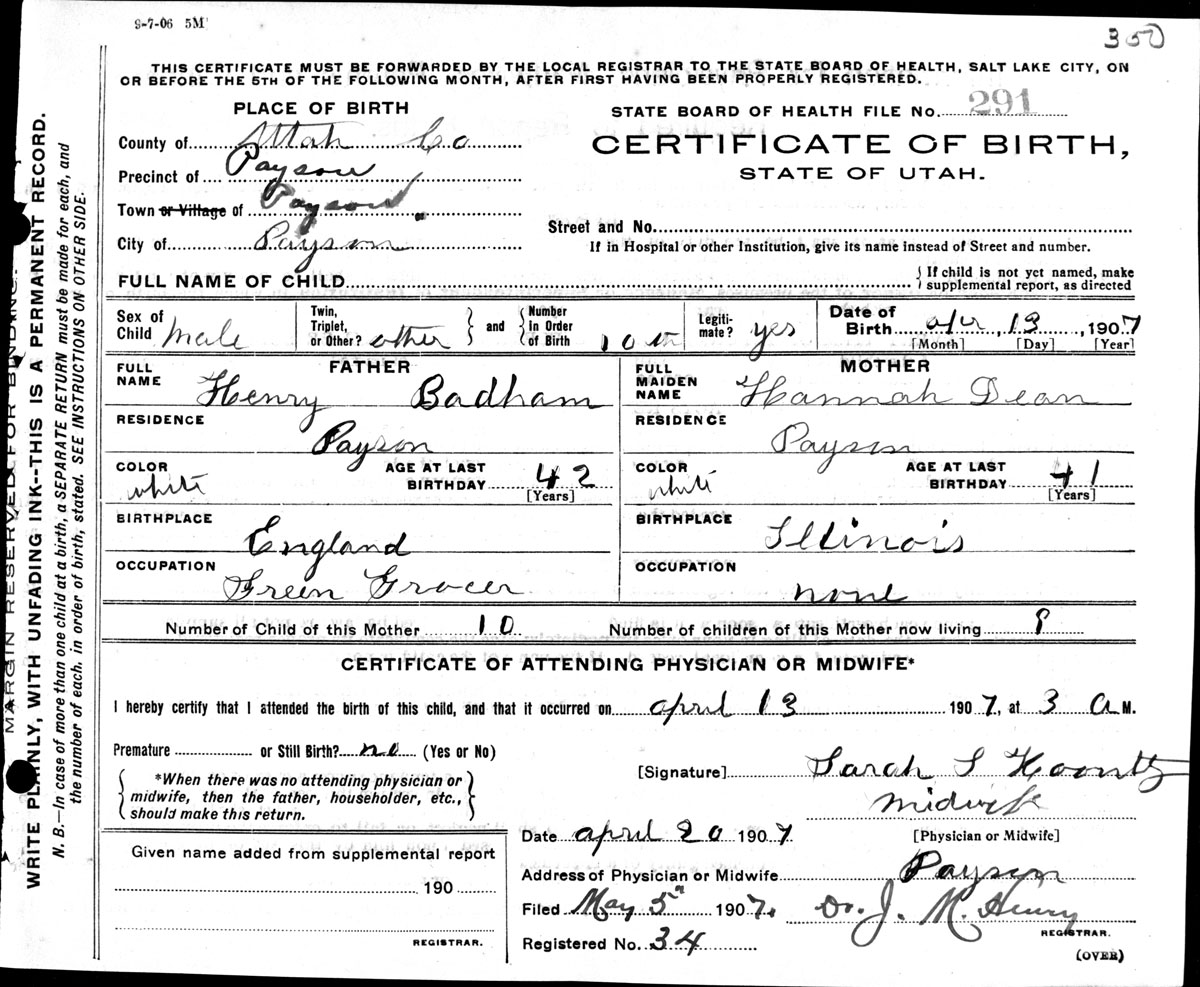 9-7-06 5M
350
THIS CERTIFICATE MUST BE FORWARDED BY THE LOCAL REGISTRAR TO THE STATE BOARD OF HEALTH, SALT LAKE CITY, ON
OR BEFORE THE 5TH OF THE FOLLOWING MONTH, AFTER FIRST HAVING BEEN PROPERLY REGISTERED.
PLACE OF BIRTH
County of Utah Co
Precinct of Payson
Town or Village of Payson
City of Payson
STATE BOARD OF HEALTH FILE No. 291
CERTIFICATE OF BIRTH,
STATE OF UTAH.
Street and No.
If in Hospital or other Institution, give its name instead of Street and number.
FULL NAME OF CHILD
If child is not yet named, make
supplemental report, as directed
Sex of Child male
Twin, Triplet, or Other? other
and
Number in Order of Birth 10th
Legiti-mate? yes
Date of Birth apr, 13, 1907
[Month] [Day] [Year]
FATHER
FULL NAME Henry Badham
RESIDENCE
Payson
COLOR white
AGE AT LAST BIRTHDAY 42
[Years]
BIRTHPLACE
England
OCCUPATION
Green Grocer
MOTHER
FULL MAIDEN NAME Hannah Dean
RESIDENCE
Payson
COLOR white
AGE AT LAST BIRTHDAY 41
[Years]
BIRTHPLACE
Illinois
OCCUPATION
none
Number of Child of this Mother 10
Number of children of this Mother now living
CERTIFICATE OF ATTENDING PHYSICIAN OR MIDWIFE*
I hereby certify that I attended the birth of this child, and that it occurred on april 13 1907, at 3 a M.
Premature or Still Birth? no (Yes or No)
*When there was no attending physician or
midwife, then the father, householder, etc.,
should make this return.
[Signature] Sarah S Koontz
midwife
[Physician or Midwife]
Date april 20 1907
Address of Physician or Midwife Payson
Filed May 5th 1907. Dr. J. M. Henry
REGISTRAR.
Registered No. 34
(OVER)
Given name added from supplemental report
190
REGISTRAR.
MARGIN RESERVED FOR BINDING.
WRITE PLAINLY, WITH UNFADING INK--THIS IS A PERMANENT RECORD.
N. B.—In case of more than one child at a birth, a SEPARATE RETURN must be made for each, and
the number of each, in order of birth, stated. SEE INSTRUCTIONS ON OTHER SIDE.